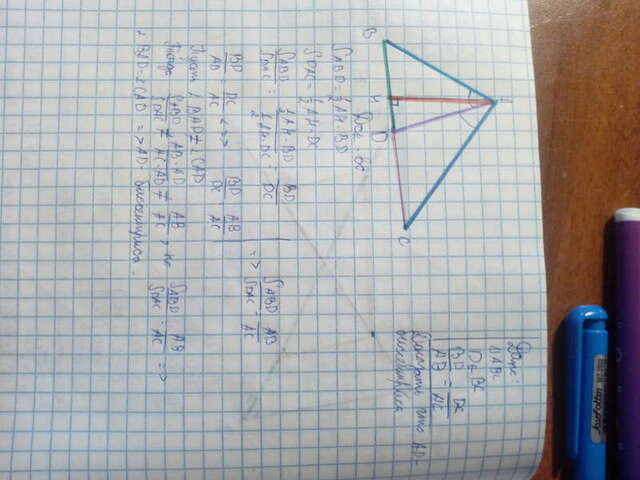 A
B
H
D
C
Дано:
ΔABC
D ∈ BC
BD/AB = DC/AC
Доказать, что AD -
биссектриса
Док-во:
S ABD = 1/2 AH · BD
S DAC = 1/2 AH · DC
S ABD / S DAC = 1/2 AH · BD / 1/2 AH · DC = BD/DC
=> S ABD / S DAC = AB/AC
BD/AB = DC/AC <=> BD/DC = AB/AC
Пусть ∠BAD ≠ ∠CAD
Тогда S ABD / S DAC ≠ AB·AD / AC·AD ≠ AB/AC, но S ABD / S DAC = AB/AC =>
∠BAD = ∠CAD => AD - биссектриса.